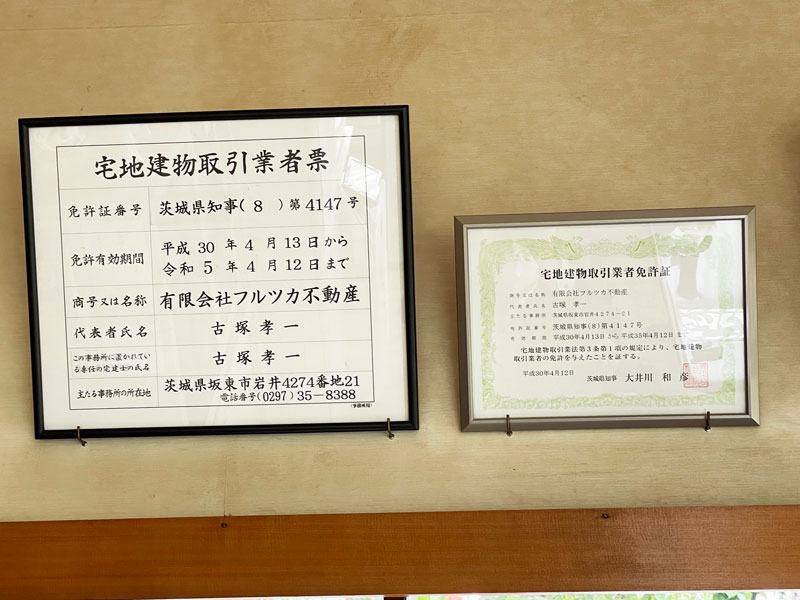 宅地建物取引業者票
免許証番号 茨城県知事(8)第4147号
免許有効期間 平成30年4月13日から
令和5年4月12日まで
商号又は名称 有限会社フルツカ不動産
代表者氏名 古塚孝一
この事務所に置かれている専任の宅建士の氏名 古塚孝一
主たる事務所の所在地 茨城県坂東市岩井4274番地21
電話番号(0297)35-8388
宅地建物取引業者免許証
商号又は名称 有限会社フルツカ不動産
代表者氏名 古塚 孝一
主たる事務所 茨城県坂東市岩井4274-21
免許証番号 茨城県知事(8)第4147号
有効期間 平成30年4月13日から 平成35年4月12日ま
宅地建物取引業法第3条第1項の規定により、宅地建物
取引業者の免許を与えたことを証する。
平成30年4月12日
茨城県知事 大井川 和彦